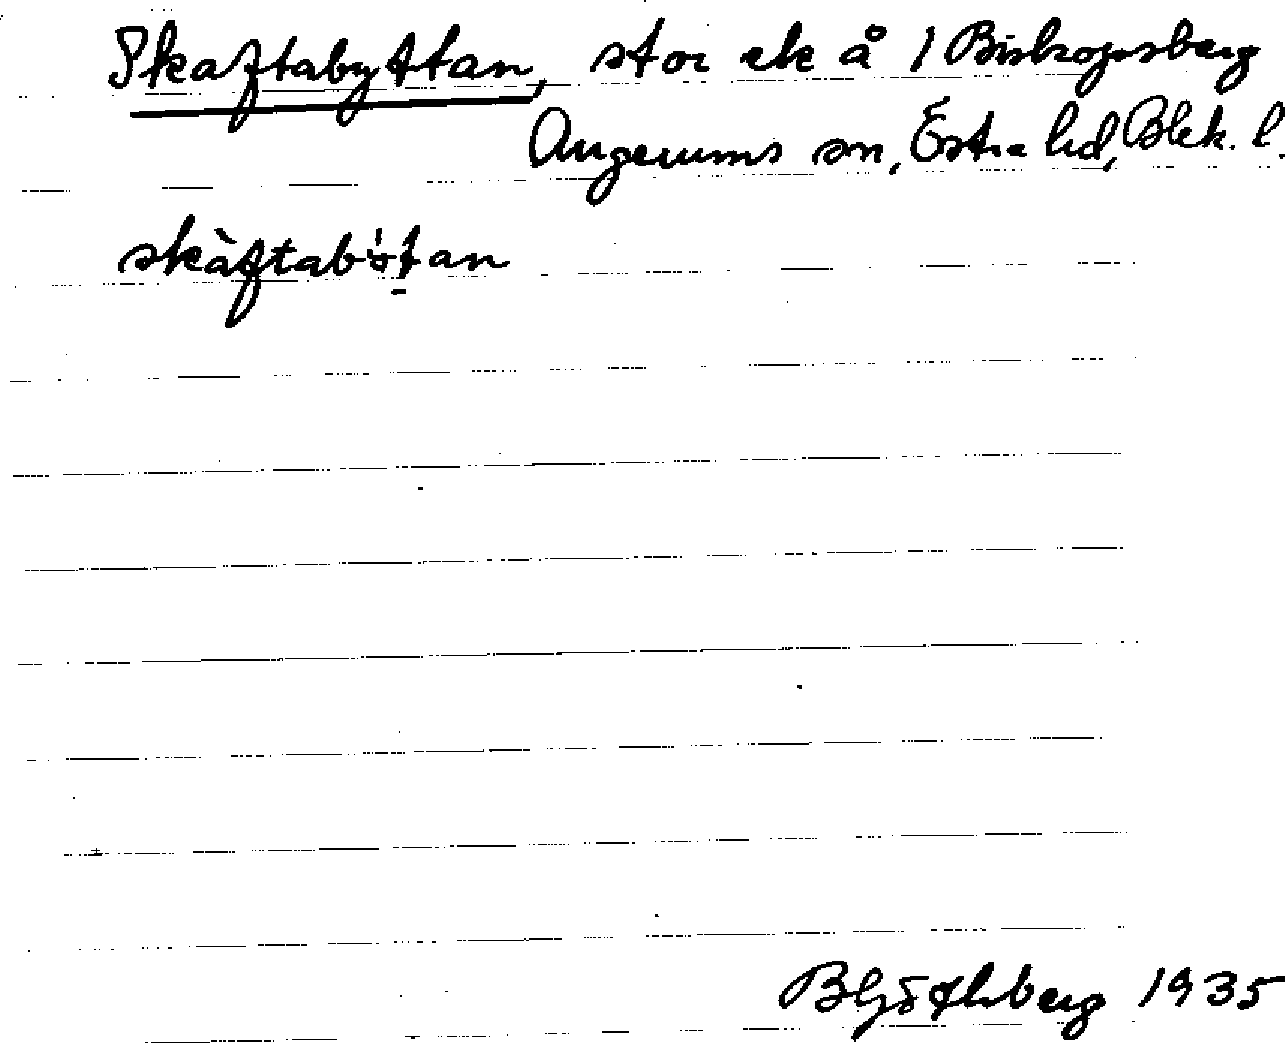 Skaftabyttan, stor ek å 1 Biskopsberg
Augerums sn, Östra hd, Blek. l.
skàftabötan
1935